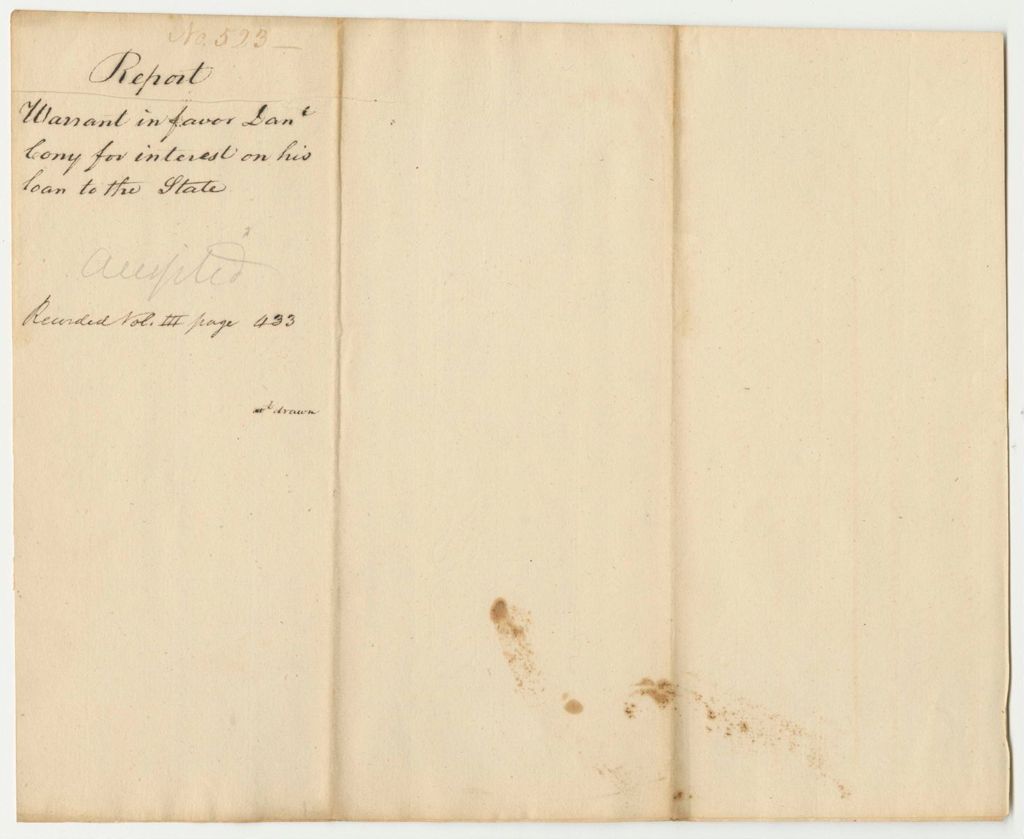 No. 523
Report
Warrant in favor Danl
Cony for interest on his
loan to the State
Accepted
Recorded Vol. III page 433
wt drawn